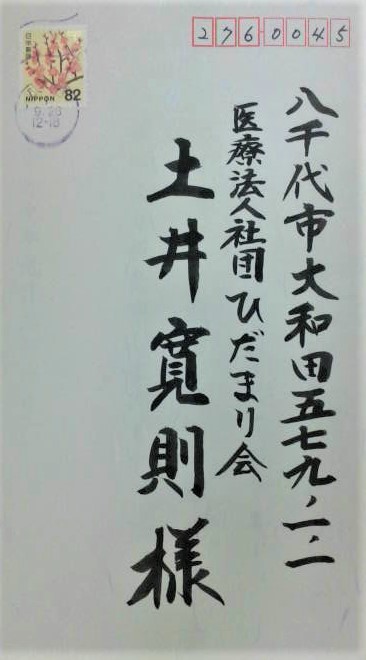 276-0045
八千代市大和田五七九、一、一
医療法人社団ひだまり会
土井寛則様
日本郵便
NIPPON 82
9.26
12-18